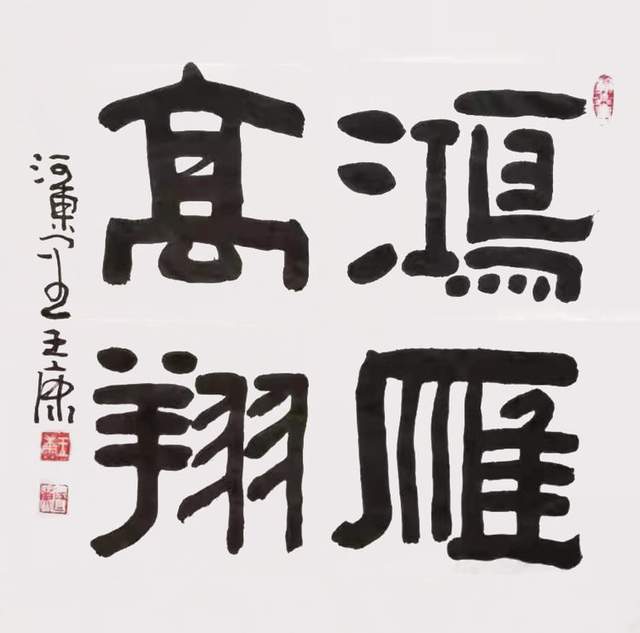 鴻雁
高翔
河東
王康